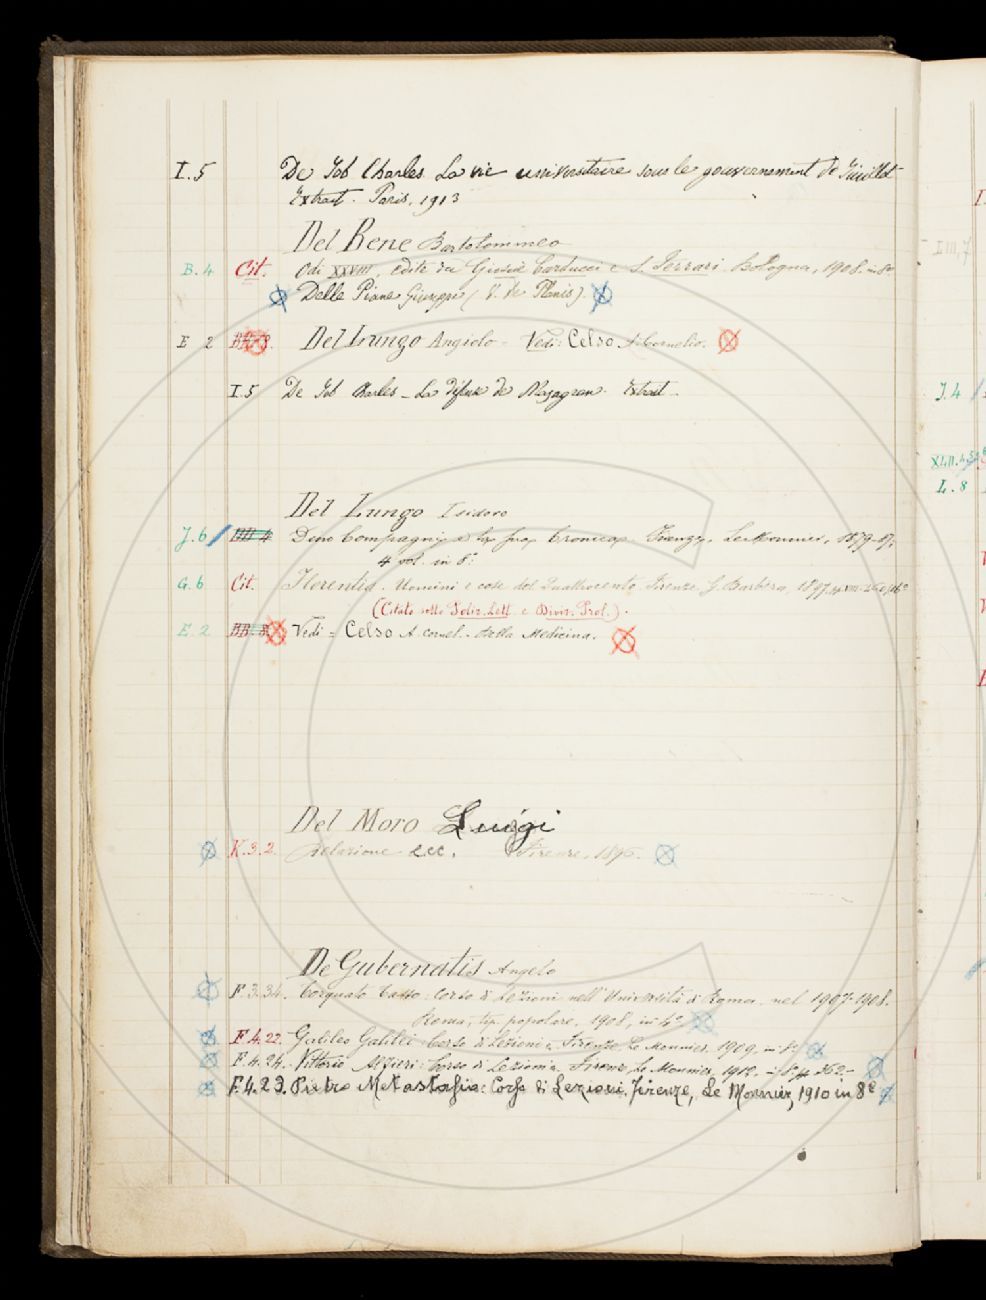 I.5 De Job Charles. La vie universitaire sous le gouvernement de Guillot
Extrait. Paris, 1913
Del Bene Bartolommeo
B.4 Cit. Odi XXVIII, edite da Giosuè Carducci e S. Ferrari. Bologna, 1908. in 8º
Delle Piane Giuseppe (V. De Planis)
E 2 Del Lungo Angiolo = Vedi: Celso A. Cornelio.
I.5 De Job Charles - La défense de Mazagran. Extrait
Del Lungo Isidoro
J.6 BB 4 Dino Compagni e la sua Cronica. Firenze, Le Monnier, 1879-87.
4 vol. in 8º
G.6 Cit. Florentia. Uomini e cose del Quattrocento. Firenze, G. Barbèra, 1897,
(Citato nelle Poliz. Lett. e Diviz. Prol.).
E.2 BB. 8. Vedi = Celso A. Cornel. - Della Medicina.
Del Moro Luigi
K.3.2. Relazione ecc. Firenze, 18
De Gubernatis Angelo
F.3.34. Torquato Tasso: Corso di Lezioni nell'Università di Roma nel 1907-1908.
Roma, tip. popolare, 1908, in 4º
F.4.22. Galileo Galilei Corso di Lezioni. Firenze, Le Monnier. 1909. in 8º
F.4.24. Vittorio Alfieri: Corso di Lezioni. Firenze, Le Monnier, 1912. in 8º 262-
F.4.23. Pietro Metastasio: Corso di Lezioni. Firenze, Le Monnier, 1910 in 8º
III,7
J.4
XLII.4.5
L.8